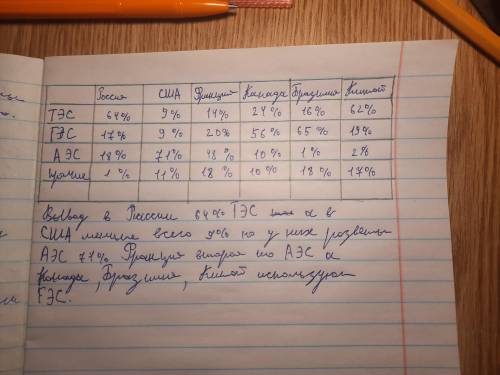 Россия США Франция Канада Бразилия Китай
ТЭС 64% 9% 14% 24% 16% 62%
ГЭС 17% 9% 20% 56% 65% 19%
АЭС 18% 71% 48% 10% 1% 2%
прочие 1% 11% 18% 10% 18% 17%
Вывод в России 64% ТЭС а в
США меньше всего 9% но у них разветы
АЭС 71% Франция вторая по АЭС а
Канада, Бразилия, Китай используют
ГЭС.